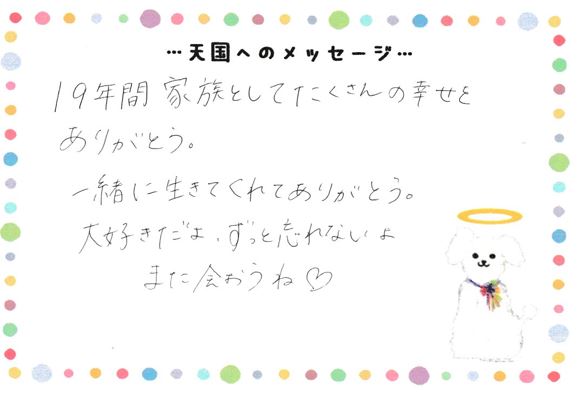 …天国へのメッセージ…
19年間家族としてたくさんの幸せを
ありがとう。
一緒に生きてくれてありがとう。
大好きだよ、ずっと忘れないよ
また会おうね♡